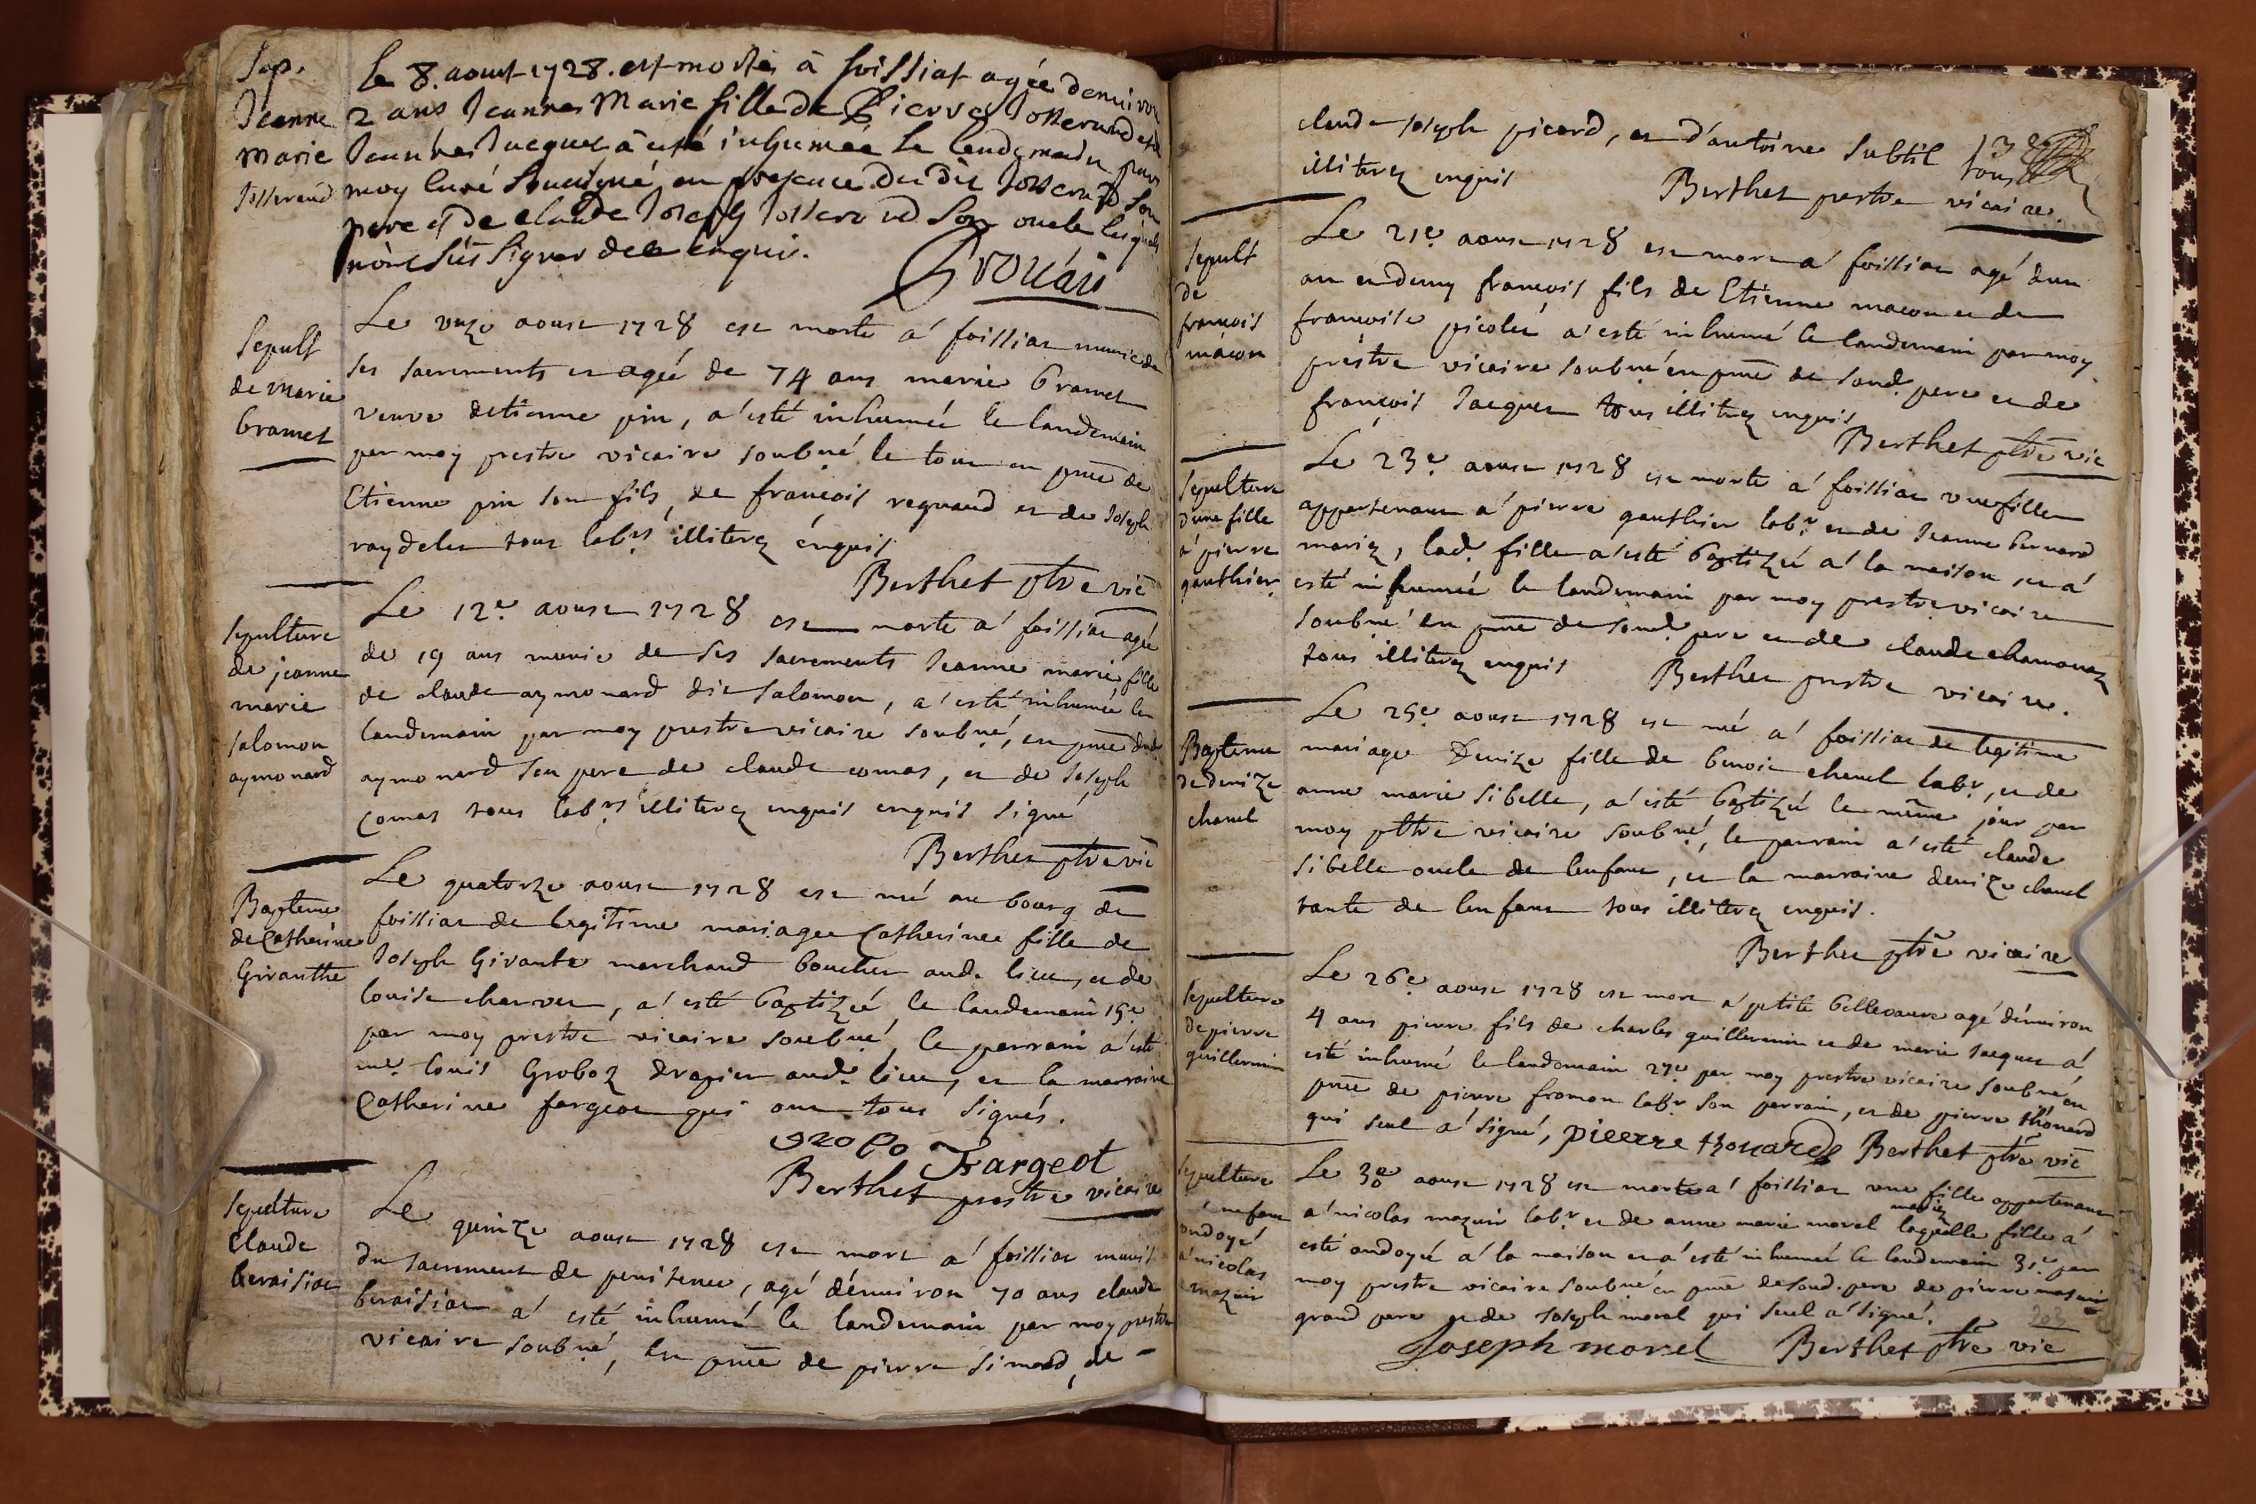 Sep.
Jeanne
Marie
Josserand
Le 8. aoust 1728. est mortes à foissiat agée denviron
2 ans Jeannes Marie fille de Pierres Josserand et de
Jeannes Jacquet a esté inhumée le lendemain par
moy curé soussigné en presence du dit Josserand son
pere et de claude Joseph Josserand son oncle lesquels
n'ont sçus signer de ce enquis.
Sepult
de marie
bramet
Le unze aoust 1728 est morte a' foissiat munie de
ses sacrements et agée de 74 ans marie bramet
veuve detienne pin, a' esté inhumée le landemain
par moy prestre vicaire soubné le tout en pnce de
Etienne pin son fils, de françois regnaud et de Joseph
raydelet tous labrs illiterez énquis
Berthet ptre vic
sepulture
de jeanne
marie
salomon
aymonard
Le 12e aoust 1728 est morte a' foissiat agée
de 19 ans munie de ses sacrements Jeanne marie fille
de claude aymonard dit salomon, a' esté inhumée le
landemain par moy prestre vicaire soubné, en pnce dud.
aymonard son pere de claude comas, et de Joseph
comas tous labrs illiterez enquis enquis signé
Berthet ptre vic
Bapteme
de Catherine
Giranthe
Le quatorze aoust 1728 est né au bourg de
foissiat de legitime mariage Catherine fille de
Joseph Girante marchand boucher aud. lieu, et de
louise charvet, a' esté baptizée le landemain 15e
par moy prestre vicaire soubné, le parrain a' esté
me. louis Groboz drapier aud. lieu, et la marraine
Catherine fargeot qui ont tous signés.
grobo Fargeot
Berthet prestre vicaire
sepulture
Claude
beraisiat
Le quinze aoust 1728 est mort a' foissiat munit
du sacrement de penitence, agé dénviron 70 ans claude
beraisiat a' esté inhumé le landemain par moy prestre
vicaire soubné, en pnce de pierre simard, de -
claude joseph picard, et d'antoine subtil
tous
illiterez enquis
Berthet prestre vicaire.
sepult
de
françois
mâcon
Le 21e aoust 1728 est mort a' foissiat agé dun
an et demy françois fils de Etienne macon et de
françoise picolet a' esté inhumé le landemain par moy
prestre vicaire soubné en pnce de sond. pere et de
françois Jacquet tous illiterez enquis
Berthet ptre vic
sepulture
dune fille
a' pierre
gauthier
Le 23e aoust 1728 est morte a' foissiat une fille
appartenant a' pierre gauthier labr et de Jeanne bernard
mariez, lad. fille a' esté baptizée a' la maison, et a'
esté inhumée le landemain par moy prestre vicaire
soubné en pnce de sond. pere et de claude chamonaz
tous illiterez enquis
Berthet prestre vicaire.
Bapteme
de denize
chanel
Le 25e aoust 1728 est né a' foissiat de legitime
mariage Denize fille de benoit chanel labr, et de
anne marie sibelle, a' esté baptizée le même jour par
moy pbtre vicaire soubné, le parrain a' esté claude
sibelle oncle de lenfant, et la marraine denize chanel
tante de lenfant tous illiterez enquis.
Berthet ptre vicaire
sepulture
de pierre
guillermin
Le 26e aoust 1728 est mort a' petite bellevavre agé dénviron
4 ans pierre fils de charles guillermin et de marie Jacquet a'
esté inhumé le landemain 27e par moy prestre vicaire soubné en
pnce de pierre fromon labr son parrain, et de pierre thonard
qui seul a' signé, pieerre thonard Berthet ptre vic
sepulture
énfant
ondoyé
a' nicolas
mazuir
Le 30e aoust 1728 est morte a' foissiat une fille appartenant
a' nicolas mazuir labr et de anne marie morel mariez laquelle fille a'
esté ondoyée a' la maison et a' esté inhumée le landemain 31e par
moy prestre vicaire soubné en pnce de sond. pere de pierre mazuir
grand pere et de Joseph morel qui seul a' signé.
Joseph morel Berthet ptre vic